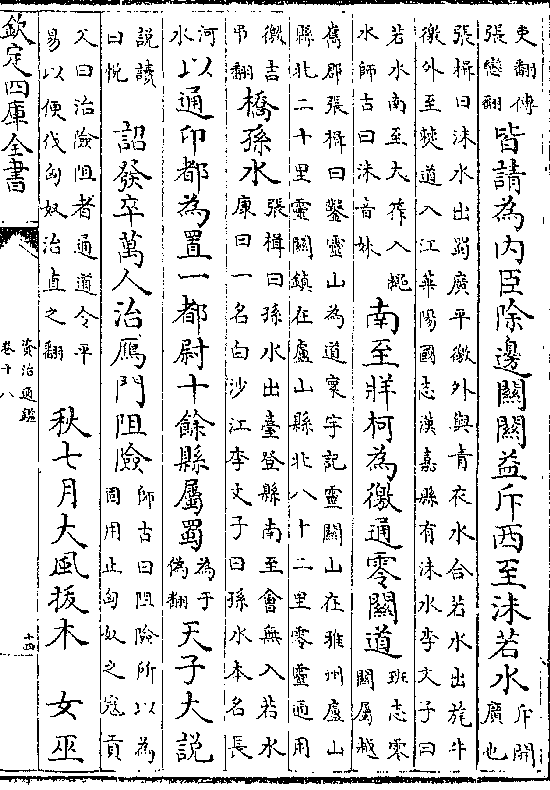 吏翻傳張戀翻皆請為內臣除邊關關益斥西至沬若水斥開廣也
張楫曰沬水出蜀廣平徼外與青衣水合若水出旄牛
徼外至僰道入江華陽國志漢嘉縣有沬水李文子曰
若水南至大莋入繩水師古曰沬音妹南至牂柯為徼通零關道班志零關屬越
嶲郡張楫曰鑿靈山為道寰宇記靈關山在雅州廬山
縣北二十里靈關鎮在廬山縣北八十二里零靈通用
徼吉弔翻橋孫水張楫曰孫水出臺登縣南至會無入若水康曰一名白沙江李文子曰孫水本名長
河水以通卭都為置一都尉十餘縣屬蜀為于偽翻天子大說
說讀曰悅詔發卒萬人治鴈門阻險師古曰阻險所以為固用止匈奴之寇貢
父曰治險阻者通道令平易以便伐匈奴治直之翻秋七月大風拔木 女巫
欽定四庫全書
資治通鑑
卷十八
十四